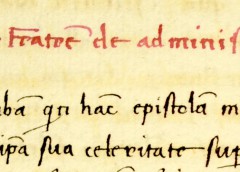 e Fratrē de adminis
bā qñ hāc epistolā m
ipā sua celeritate sup